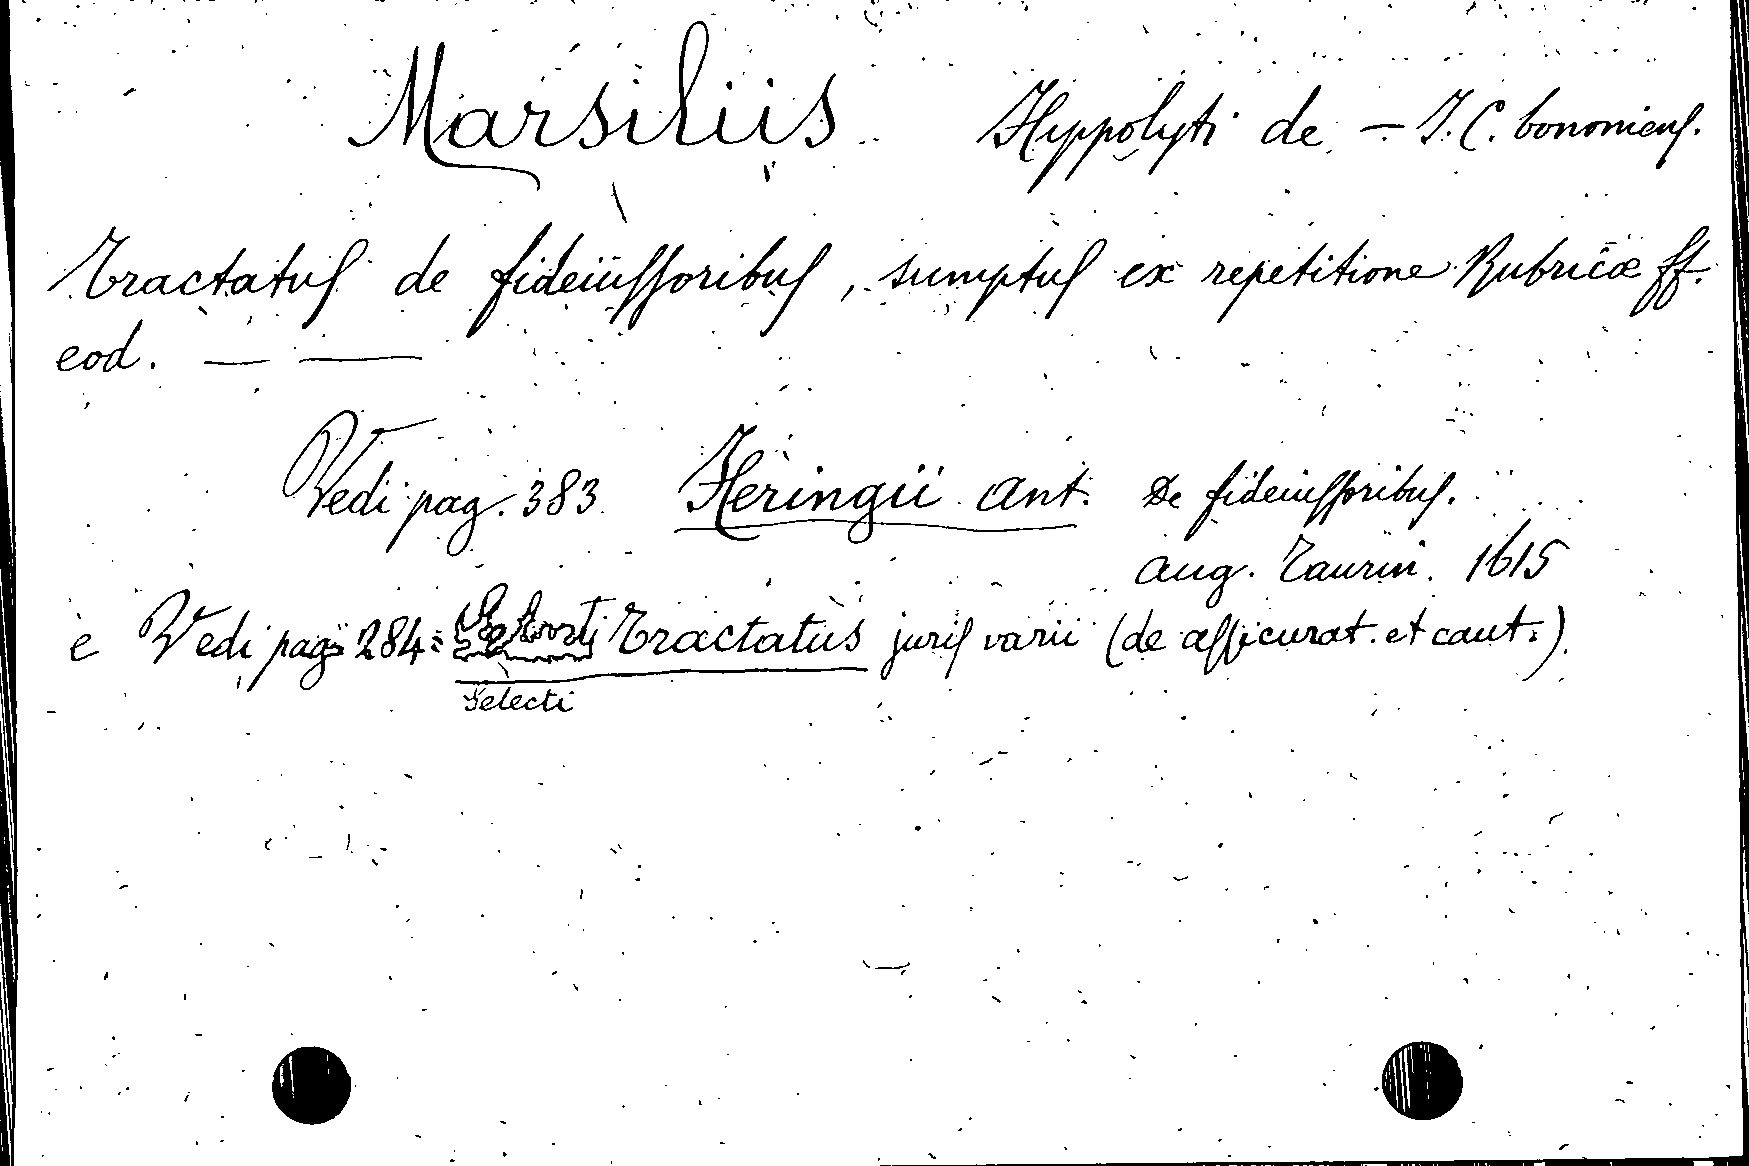 Marsiliis Hippolyti de – J. C. bononiens.
Tractatus de fideiussoribus, sumptus ex repetitione Rubricæ ff.
eod. — —
Vedi pag. 383 Heringii Ant. De fideiussoribus.
Aug. Taurin. 1615
e Vedi pag. 284= Tractatus juris varii (de assicurat. et caut.).
Selecti